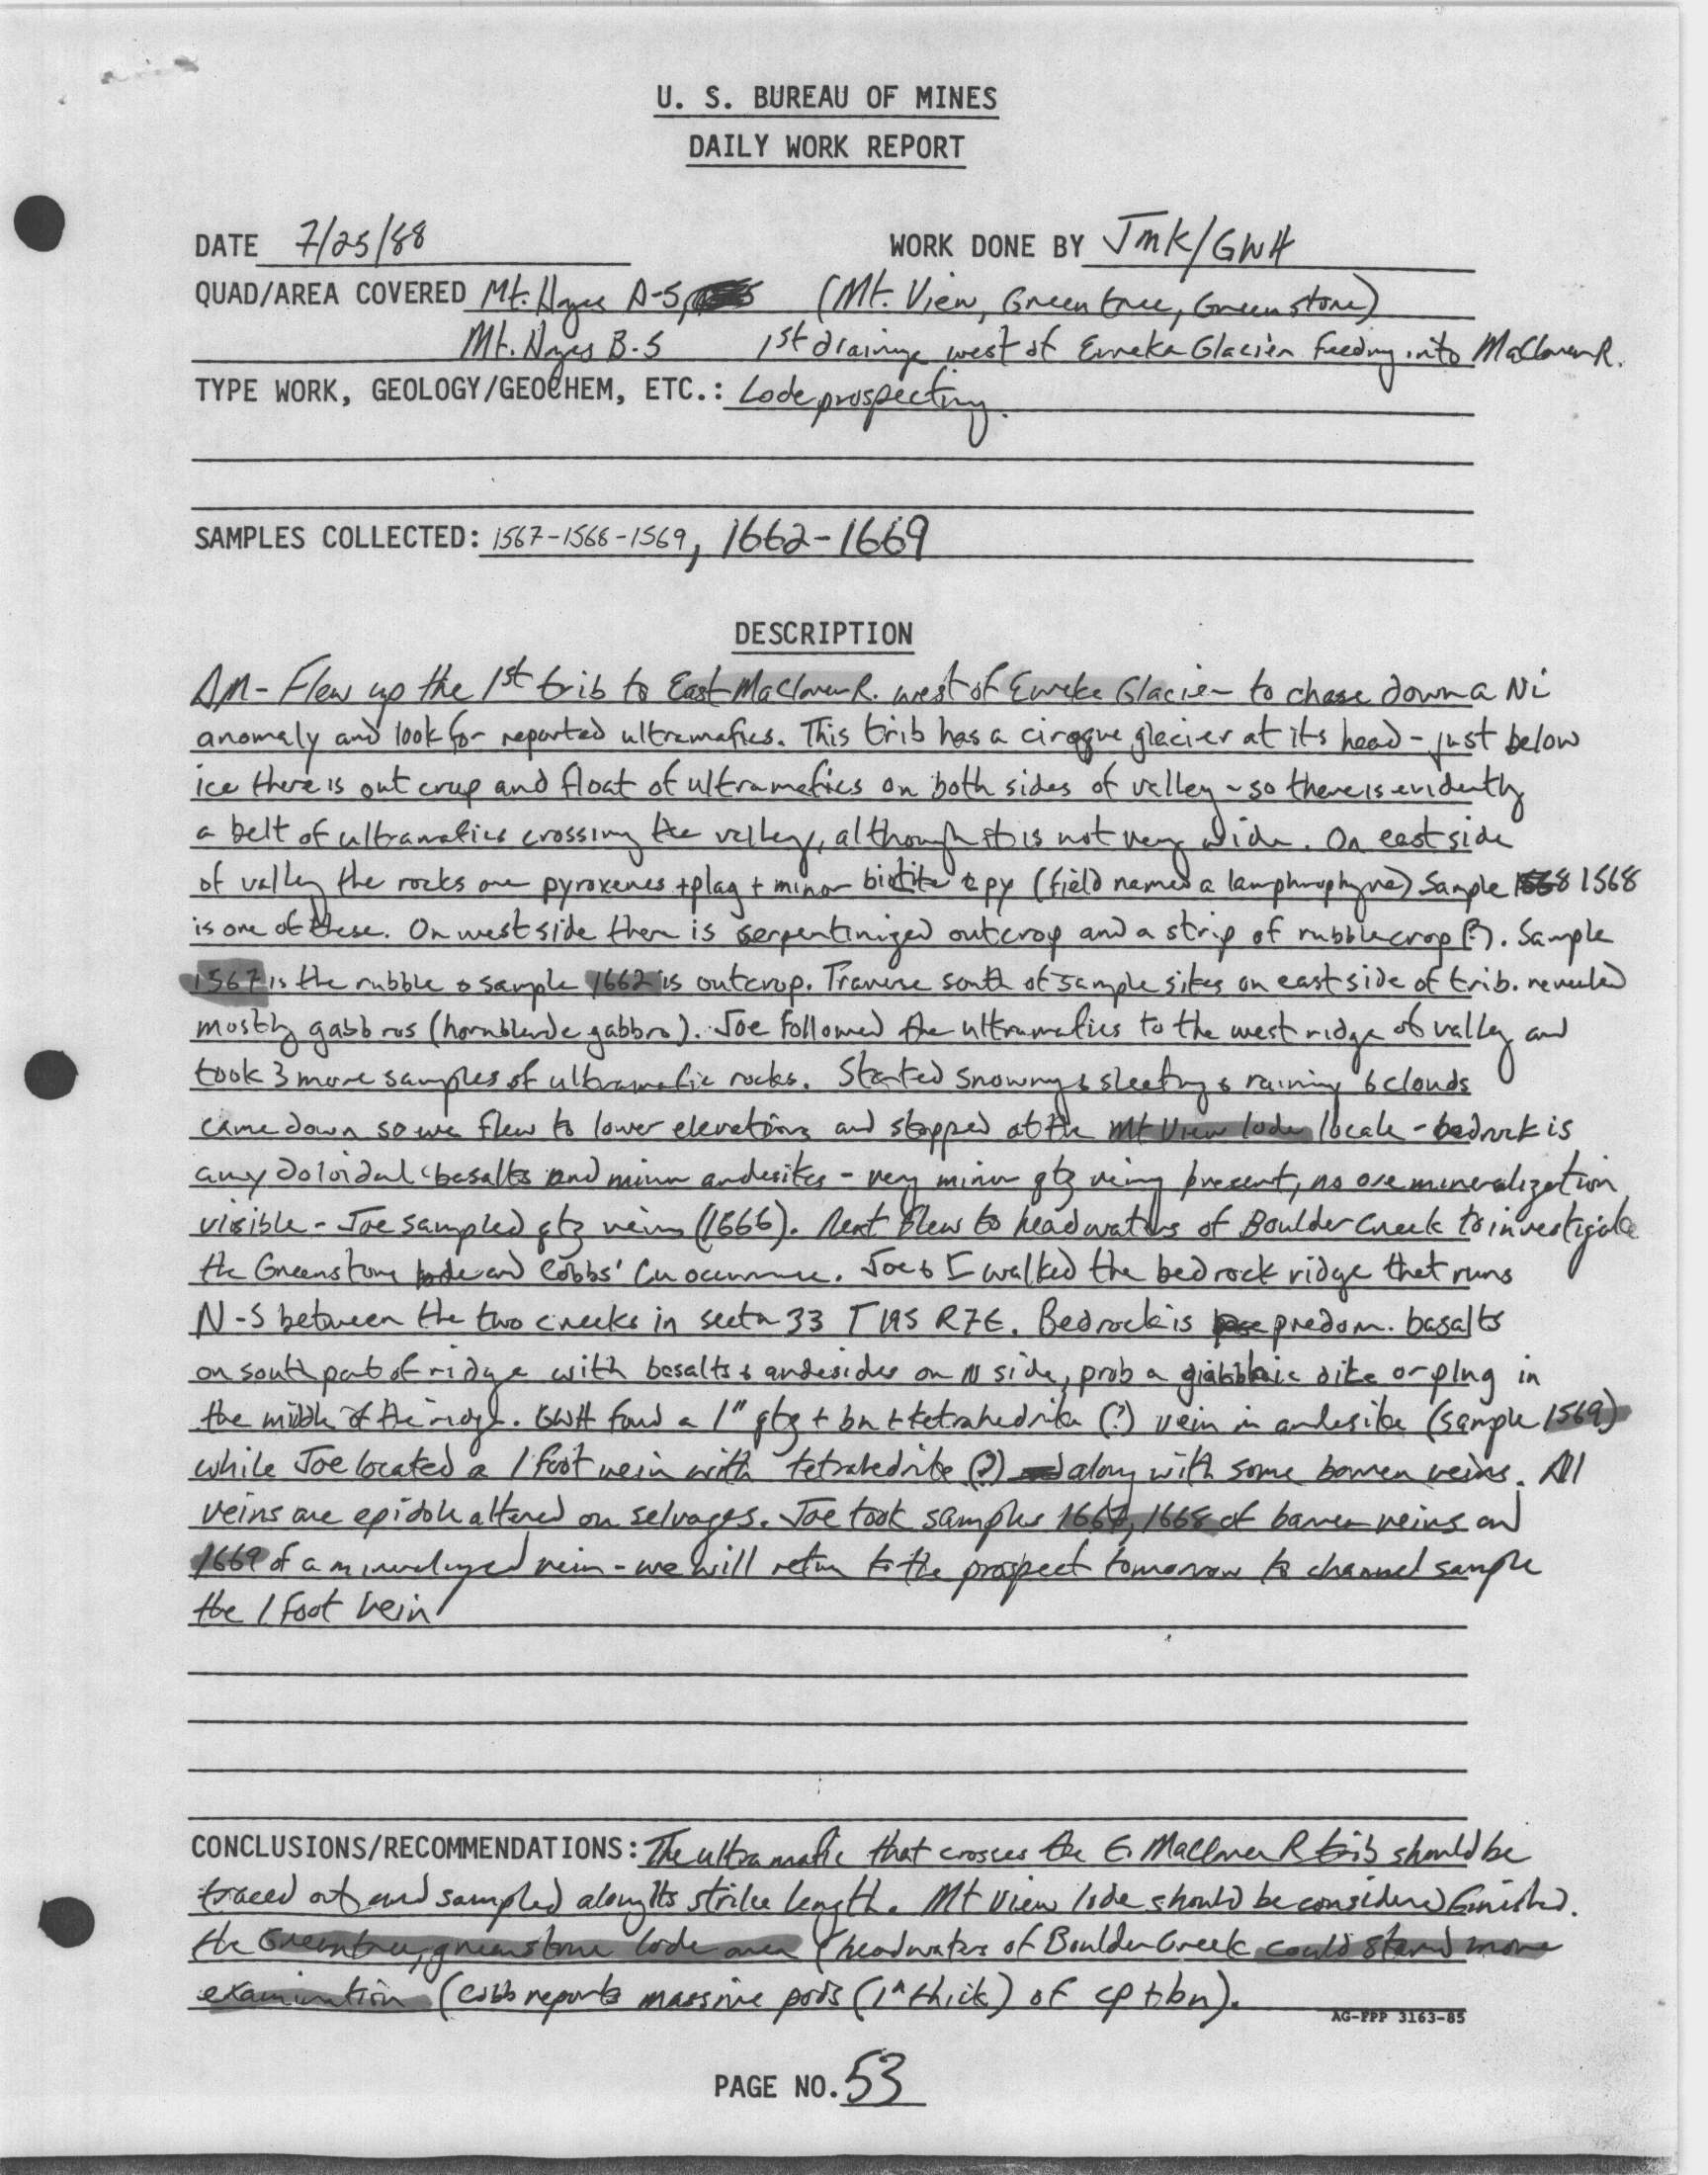 U. S. BUREAU OF MINES
DAILY WORK REPORT
DATE 7/25/88 WORK DONE BY JMK/GWH
QUAD/AREA COVERED Mt. Hayes A-5, (Mt. View, Greentree, Greenstone)
Mt. Hayes B-5 1st drainage west of Eureka Glacier feeding into MaClaren R.
TYPE WORK, GEOLOGY/GEOCHEM, ETC.: Lode prospecting.
SAMPLES COLLECTED: 1567-1568-1569, 1662-1669
DESCRIPTION
AM- Flew up the 1st trib to East MaClaren R. west of Eureka Glacier to chase down a Ni
anomaly and look for reported ultramafics. This trib has a cirque glacier at its head - just below
ice there is outcrop and float of ultramafics on both sides of valley - so there is evidently
a belt of ultramafics crossing the valley, although it is not very wide. On east side
of valley the rocks are pyroxenes + plag + minor biotite & py (field named a lamphrophyre) Sample 1568
is one of these. On west side there is serpentinized outcrop and a strip of rubblecrop (?). Sample
1567 is the rubble & sample 1662 is outcrop. Traverse south of sample sites on east side of trib. revealed
mostly gabbros (hornblende gabbro). Joe followed the ultramafics to the west ridge of valley and
took 3 more samples of ultramafic rocks. Started snowing & sleeting & raining & clouds
came down so we flew to lower elevations and stopped at the Mt View lode locale - bedrock is
amydoloidal basalts and minor andesites - very minor qtz veins present, no ore mineralization
visible - Joe sampled qtz veins (1666). Next flew to headwaters of Boulder Creek to investigate
the Greenstone lode and Cobbs' Cu occurrence. Joe & I walked the bedrock ridge that runs
N-S between the two creeks in sectn 33 T19S R7E. Bedrock is predom. basalts
on south part of ridge with basalts & andesides on N side, prob a gabbroic dike or plug in
the middle of the ridge. GWH found a 1" qtz + bn + tetrahedrite (?) vein in andesite (sample 1569)
while Joe located a 1 foot vein with tetrahedrite (?) along with some barren veins. All
veins are epidote altered on selvages. Joe took samples 1667, 1668 of barren veins and
1669 of a mineralized vein - we will return to the prospect tomorrow to channel sample
the 1 foot vein
CONCLUSIONS/RECOMMENDATIONS: The ultramafic that crosses the E. MaClaren R trib should be
traced out and sampled along its strike length. Mt View lode should be considered finished.
the Greentree, greenstone lode area (headwaters of Boulder Creek could stand more
examination (Cobb reports massive pods (1" thick) of cp + bn).
AG-FPP 3163-85
PAGE NO. 53